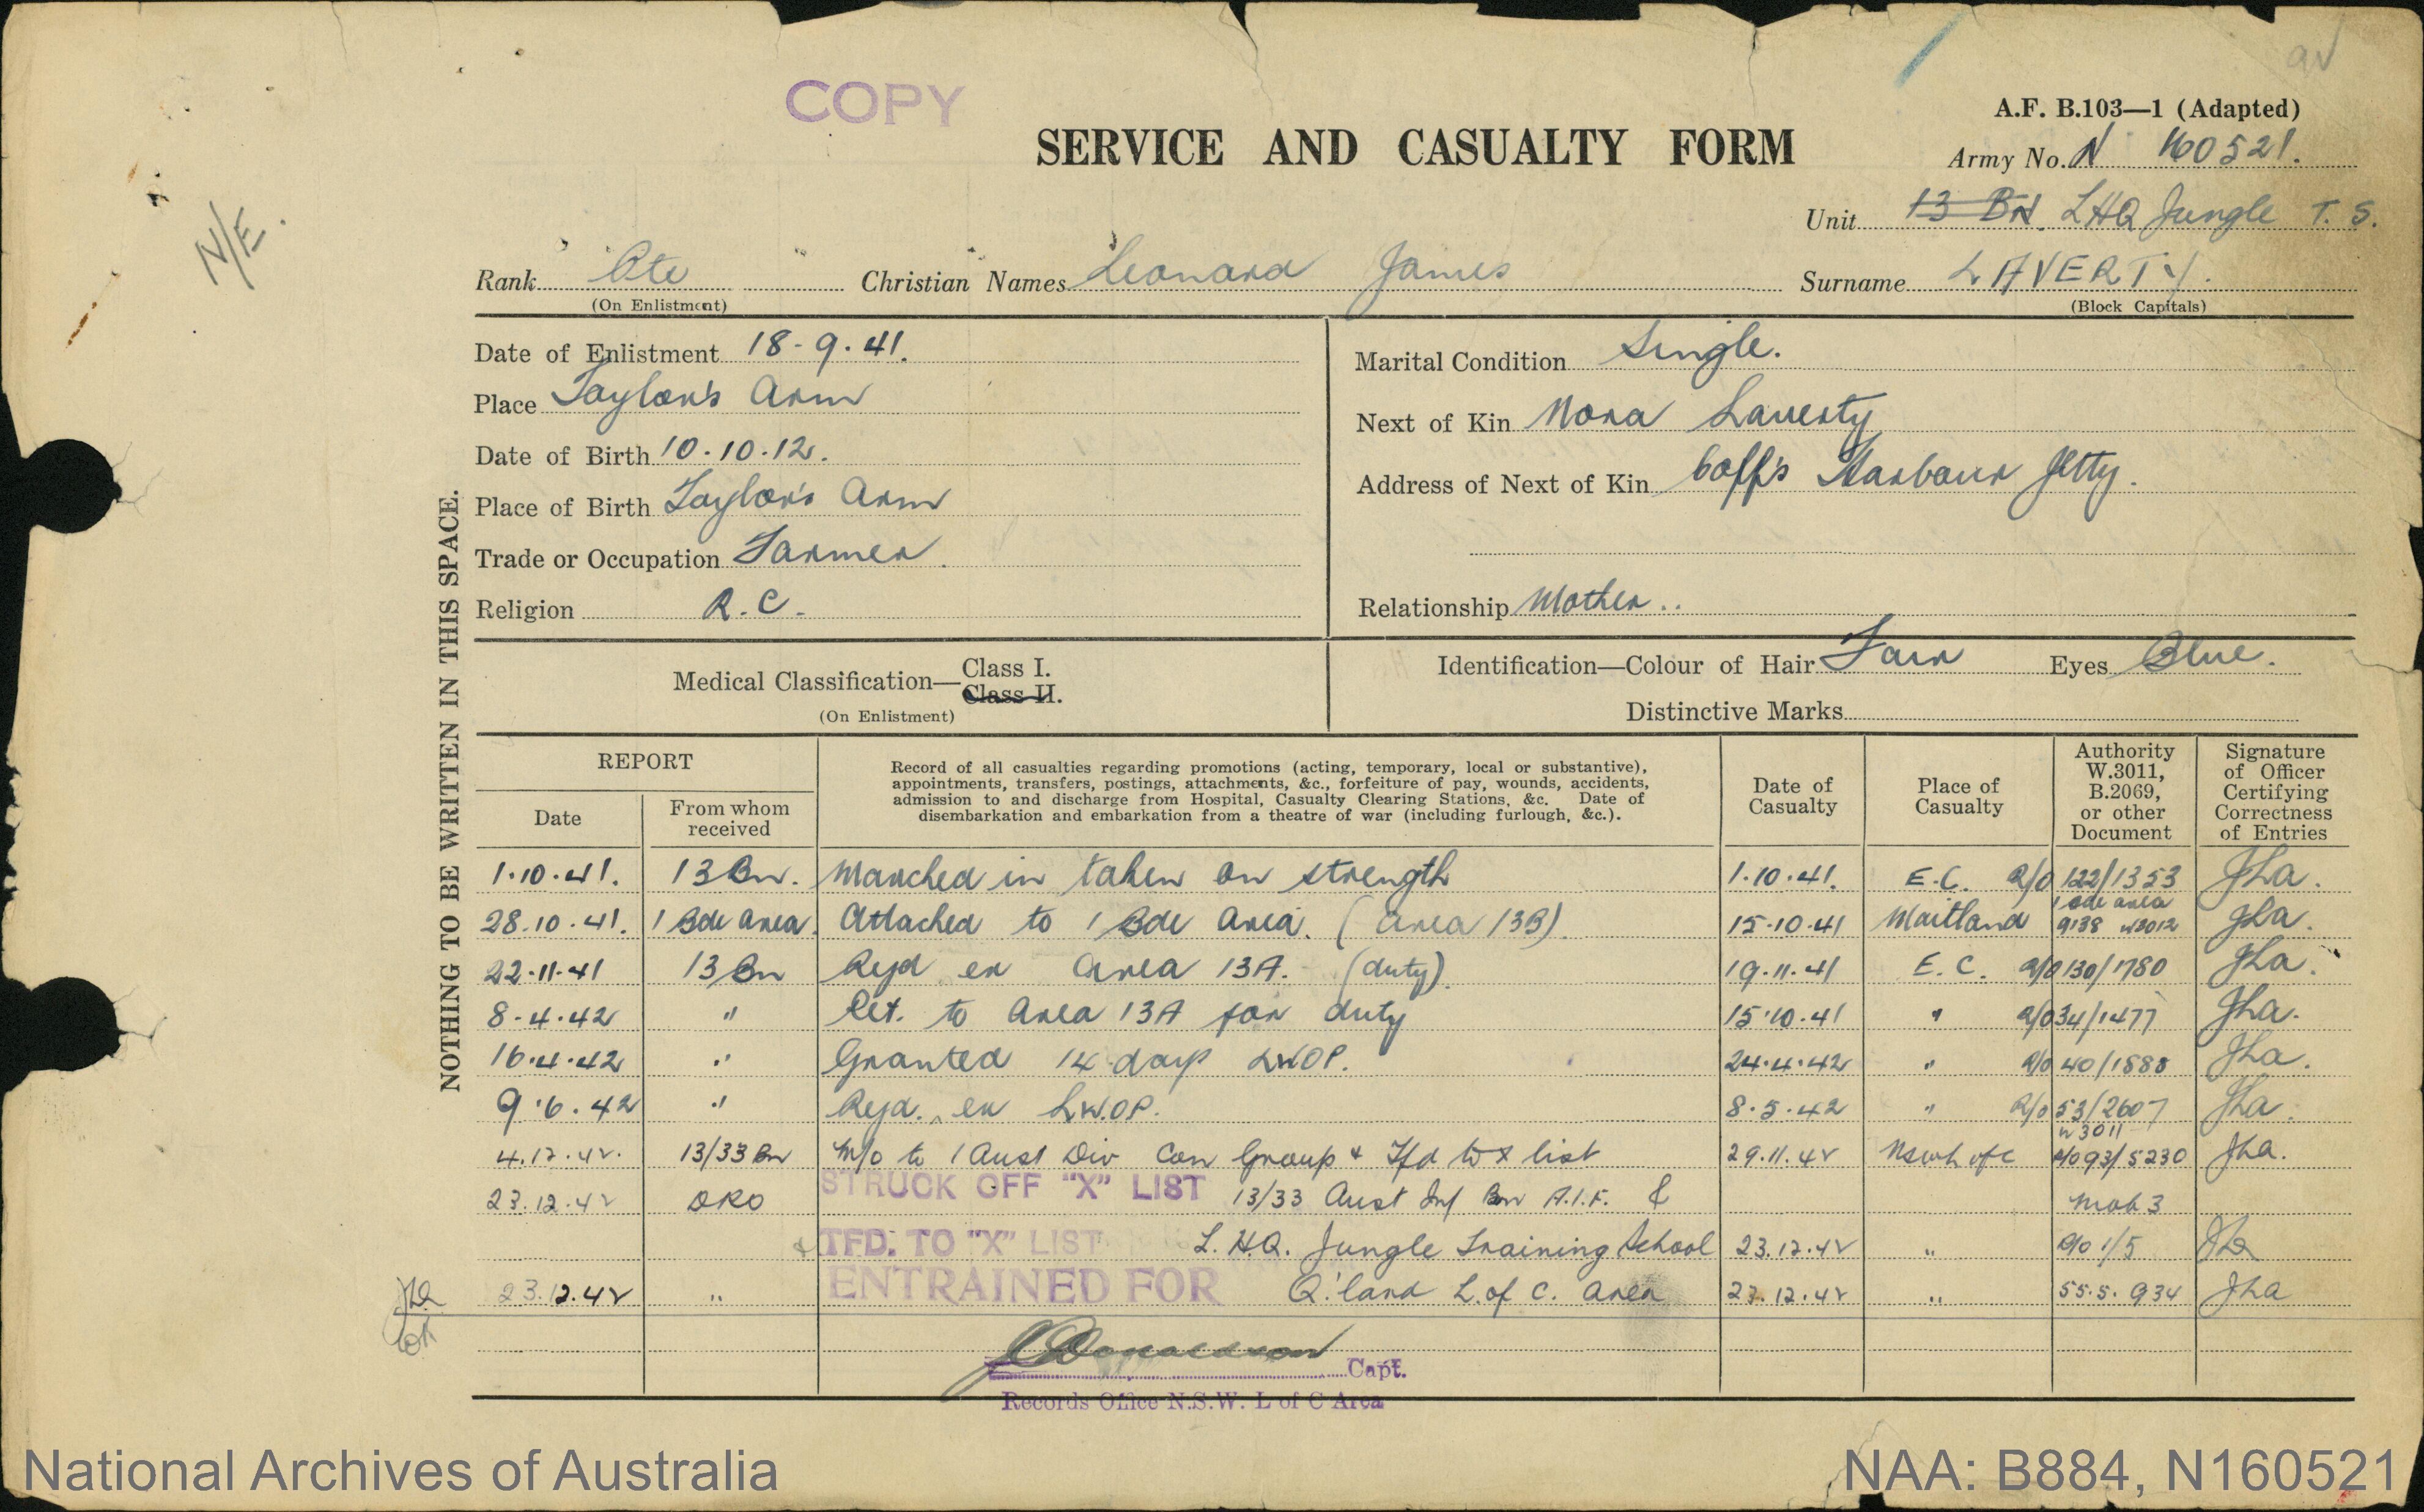 COPY
A.F. B.103—1 (Adapted)
SERVICE AND CASUALTY FORM
Army No. N 160521.
Unit 13 BN. LHQ Jungle T. S.
N/E.
Rank Pte Christian Names Leonard James Surname LAVERTY.
(On Enlistment) (Block Capitals)
Date of Enlistment 18-9.41.
Place Taylor's Arm
Date of Birth 10.10.12.
Place of Birth Taylor's Arm
Trade or Occupation Farmer.
Religion R.C.
Marital Condition Single.
Next of Kin Nora Laverty
Address of Next of Kin Coff's Harbour Jetty.
Relationship Mother..
NOTHING TO BE WRITTEN IN THIS SPACE.
Medical Classification— Class I.
Class II.
(On Enlistment)
Identification—Colour of Hair Fair Eyes Blue.
Distinctive Marks
REPORT
Date
From whom received
Record of all casualties regarding promotions (acting, temporary, local or substantive),
appointments, transfers, postings, attachments, &c., forfeiture of pay, wounds, accidents,
admission to and discharge from Hospital, Casualty Clearing Stations, &c. Date of
disembarkation and embarkation from a theatre of war (including furlough, &c.).
Date of Casualty
Place of Casualty
Authority W.3011, B.2069, or other Document
Signature of Officer Certifying Correctness of Entries
1.10.41. 13 Bn. Marched in taken on strength 1.10.41. E.C. R/O 122/1353 JLa.
28.10.41. 1 Bde Area. Attached to 1 Bde Area. (Area 13B). 15.10.41 Maitland 1 Bde area 9138 W3012 JLa.
22.11.41 13 Bn Rejd ex Area 13A. (duty). 19.11.41 E.C. R/O 130/1780 JLa.
8.4.42 " Ret. to Area 13A for duty 15.10.41 " R/O 34/1477 JLa.
16.4.42 " Granted 14 days LWOP. 24.4.42 " R/O 40/1888 JLa.
9.6.42 " Rejd. ex LW.OP. 8.5.42 " R/O 53/2607 JLa.
4.12.42. 13/33 Bn M/o to 1 Aust Div Con Group & Tfd to X list 29.11.42 NSW L of C W3011 R/O 93/5230 JLa.
23.12.42 DRO STRUCK OFF "X" LIST 13/33 Aust Inf Bn A.I.F. & Mob 3
& TFD. TO "X" LIST L.H.Q. Jungle Training School 23.12.42 " R/O 1/5 JLa
23.12.42 " ENTRAINED FOR Q'land L. of C. Area 23.12.42 " 55.5.934 JLa
JDonaldson Capt.
Records Office N.S.W. L of C Area
National Archives of Australia
NAA: B884, N160521